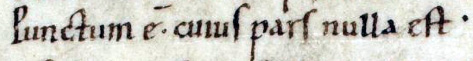 Punctum ē. cuius pars nulla est.